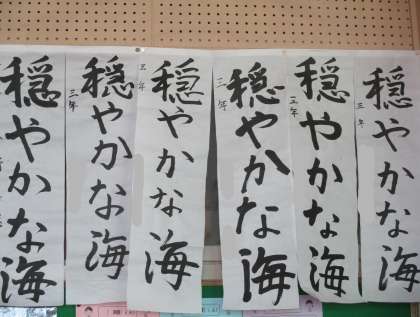 穏やかな海
三年
穏やかな海
三年
穏やかな海
三年
穏やかな海
三年
穏やかな海
三年
穏やかな海